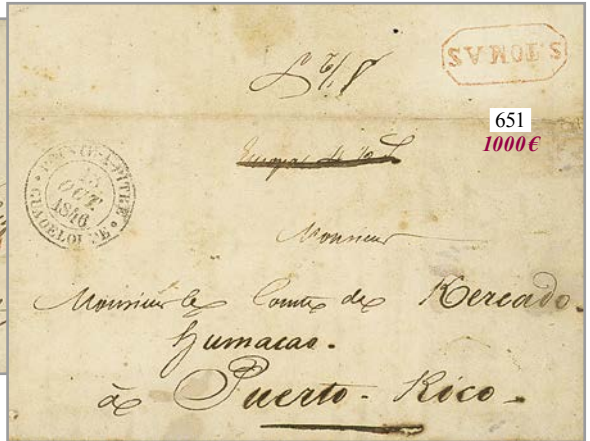 S. TOMAS
651
1000€
POINTE-A-PITRE
13
OCT.
1846
GUADELOUPE
Monsieur
Monsieur le Comte de Kercado.
Humacao.
à Puerto-Rico.